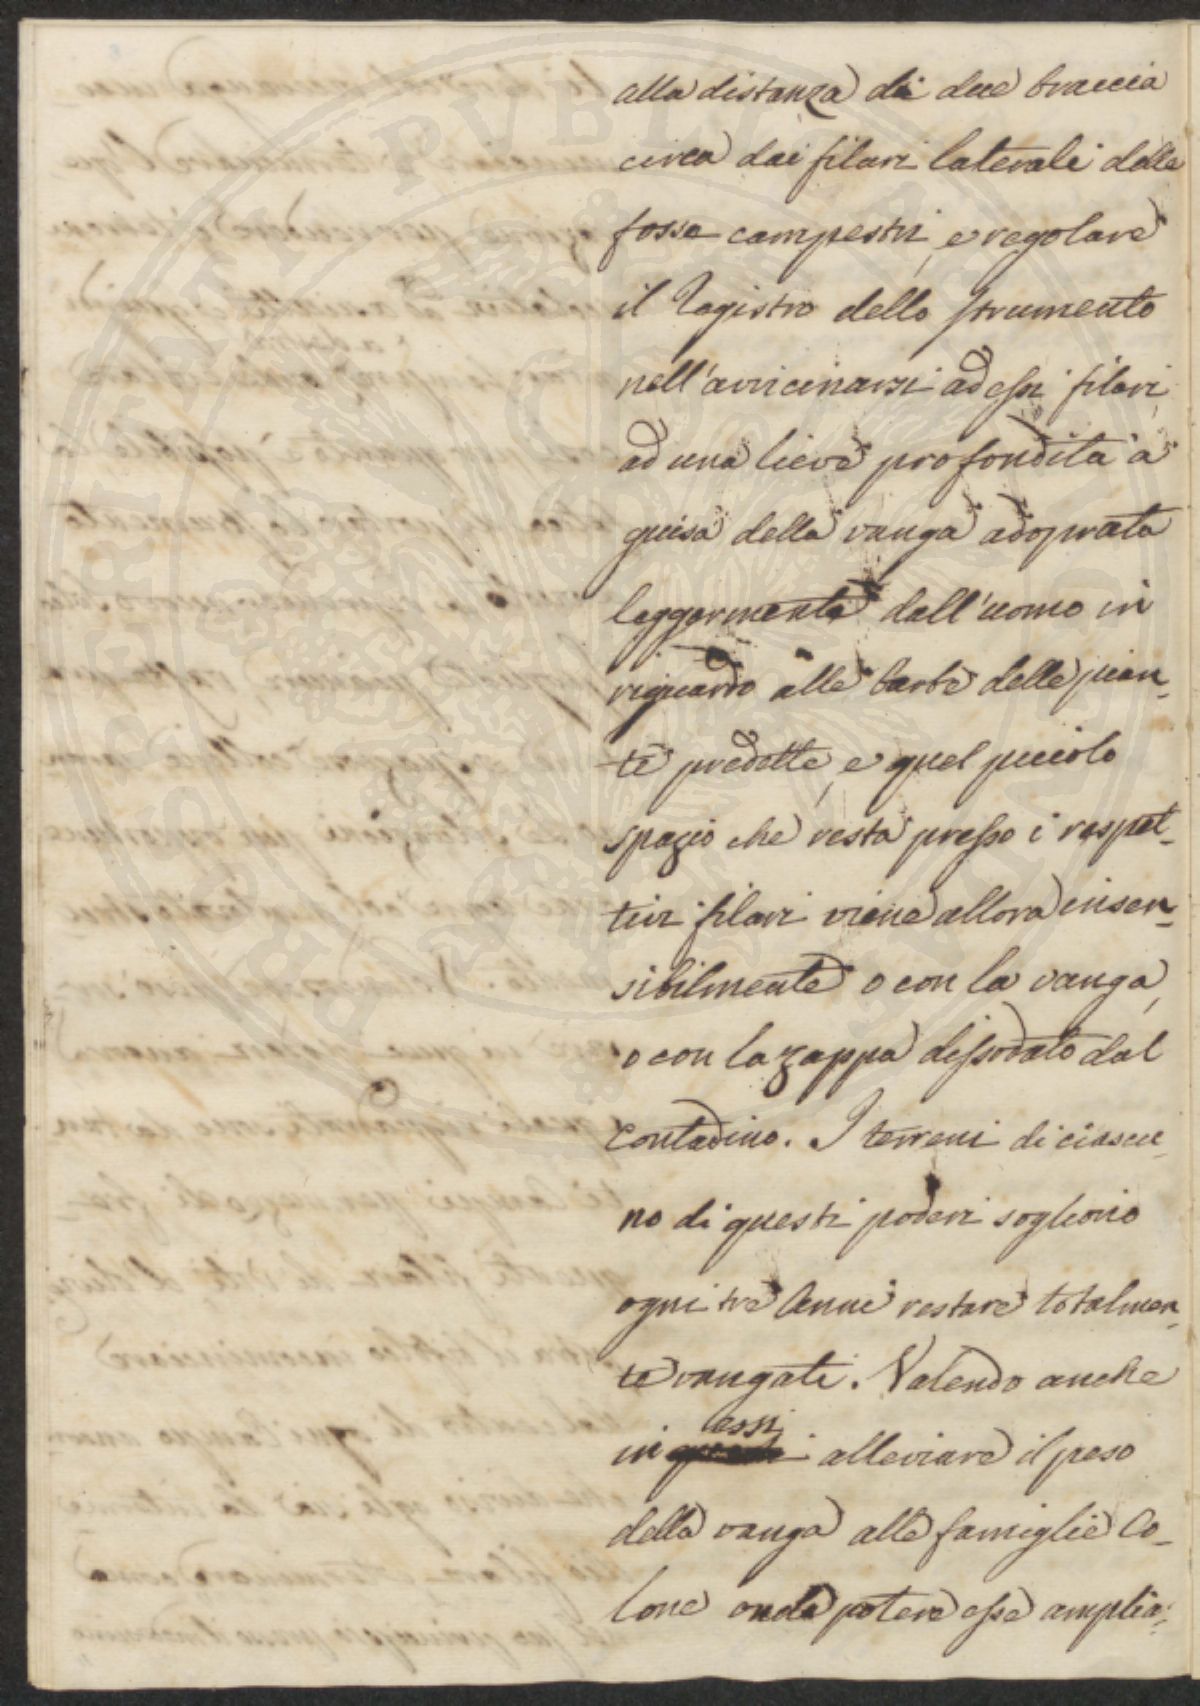 alla distanza di due braccia
circa dai filari laterali delle
fosse campestri, e regolare
il Registro dello strumento
nell'avvicinarsi ad essi filari,
ad una lieve profondità a
guisa della vanga adoprata
leggermente dall'uomo in
riguardo alle barbe delle pian-
te predette, e quel piccolo
spazio che resta presso i respet-
tivi filari viene allora insen-
sibilmente o con la vanga,
o con la zappa dissodato dal
contadino. I terreni di ciascu-
no di questi poderi sogliono
ogni tre Anni restare totalmen-
te vangati. Volendo anche
in essi alleviare il peso
della vanga alle famiglie Co-
lone onde potere esse amplia-